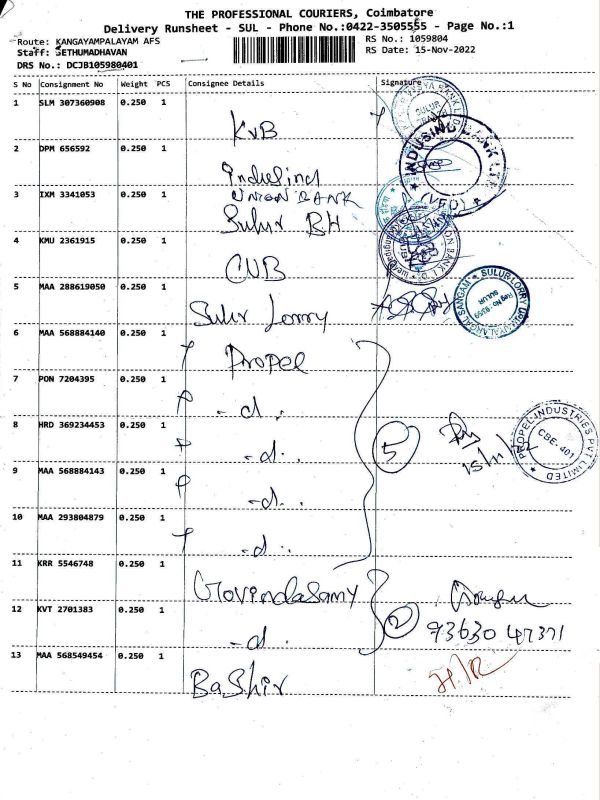 THE PROFESSIONAL COURIERS, Coimbatore
Delivery Runsheet - SUL - Phone No.:0422-3505555 - Page No.:1
Route: KANGAYAMPALAYAM AFS
RS No.: 1059804
Staff: SETHUMADHAVAN
RS Date: 15-Nov-2022
DRS No.: DCJB105980401
S No Consignment No Weight PCS Consignee Details Signature
1 SLM 307360908 0.250 1
KVB
SULUR
2 DPM 656592 0.250 1
Indusind
INDUSIND BANK LTD
3 IXM 3341053 0.250 1
UNION BANK
Sulur BH
4 KMU 2361915 0.250 1
CUB
5 MAA 288619050 0.250 1
Sulur Lorry
SULUR LORRY
SANGAM
Reg No 9359
SULUR
6 MAA 568884140 0.250 1
Propel
7 PON 7204395 0.250 1
- d.
8 HRD 369234453 0.250 1
- d.
5
15/11/22
PROPEL INDUSTRIES PVT LIMITED
CBE-401
9 MAA 568884143 0.250 1
- d.
10 MAA 293804879 0.250 1
- d.
11 KRR 5546748 0.250 1
Govindasamy
12 KVT 2701383 0.250 1
- d.
2
93630 47371
13 MAA 568549454 0.250 1
Bashir